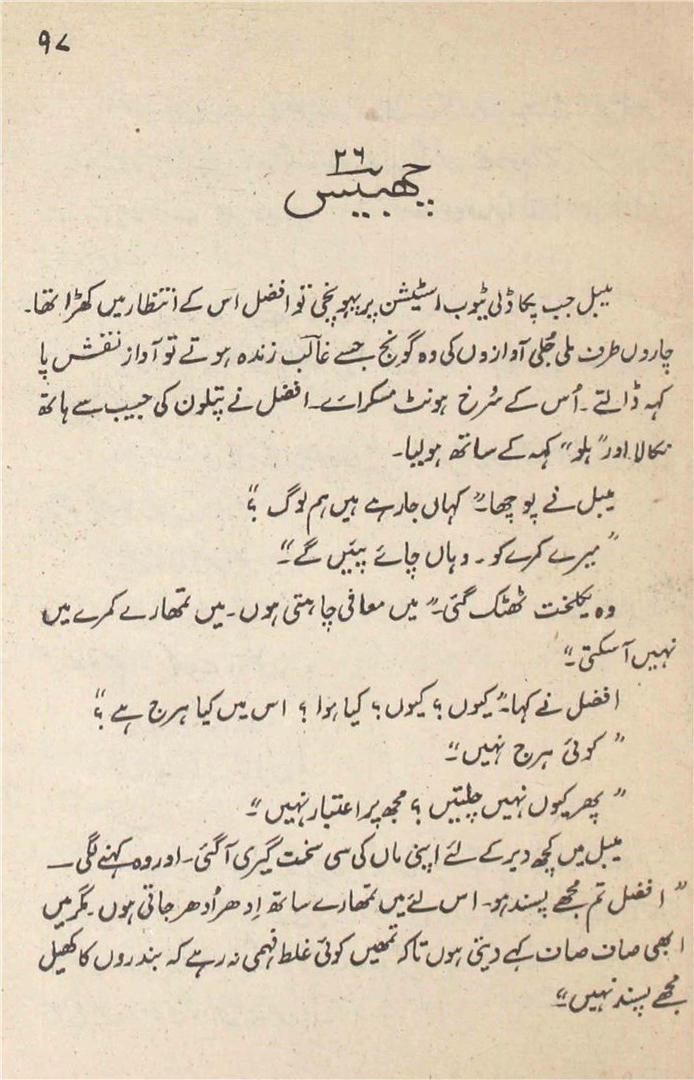 ۹۷
۲۶
چھبیس
میبل جب پکاڈلی ٹیوب اسٹیشن پر پہونچی تو افضل اس کے انتظار میں کھڑا تھا۔
چاروں طرف ملی جُلی آوازوں کی وہ گونج جسے غالبؔ زندہ ہوتے تو آواز نقشِ پا
کہہ ڈالتے۔ اُس کے سُرخ ہونٹ مسکرائے۔ افضل نے پتلون کی جیب سے ہاتھ
نکالا اور "ہلو" کہہ کے ساتھ ہولیا۔
میبل نے پوچھا۔ "کہاں جارہے ہیں ہم لوگ ؟"
"میرے کمرے کو۔ وہاں چائے پئیں گے۔"
وہ یکلخت ٹھٹک گئی۔ "میں معافی چاہتی ہوں۔ میں تمھارے کمرے میں
نہیں آسکتی۔"
افضل نے کہا۔ "کیوں ؟ کیوں ؟ کیا ہوا ؟ اس میں کیا ہرج ہے ؟"
"کوئی ہرج نہیں۔"
"پھر کیوں نہیں چلتیں ؟ مجھ پر اعتبار نہیں۔"
میبل میں کچھ دیر کے لئے اپنی ماں کی سی سخت گیری آگئی۔ اور وہ کہنے لگی —
"افضل تم مجھے پسند ہو۔ اس لئے میں تمھارے ساتھ اِدھر اُدھر جاتی ہوں۔ مگر میں
ابھی صاف صاف کہے دیتی ہوں تاکہ تمھیں کوئی غلط فہمی نہ رہے کہ بندروں کا کھیل
مجھے پسند نہیں۔"